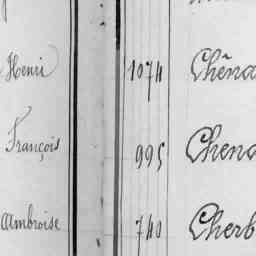 Henri 1074 Chêna
François 995 Chena
Ambroise 740 Cherb